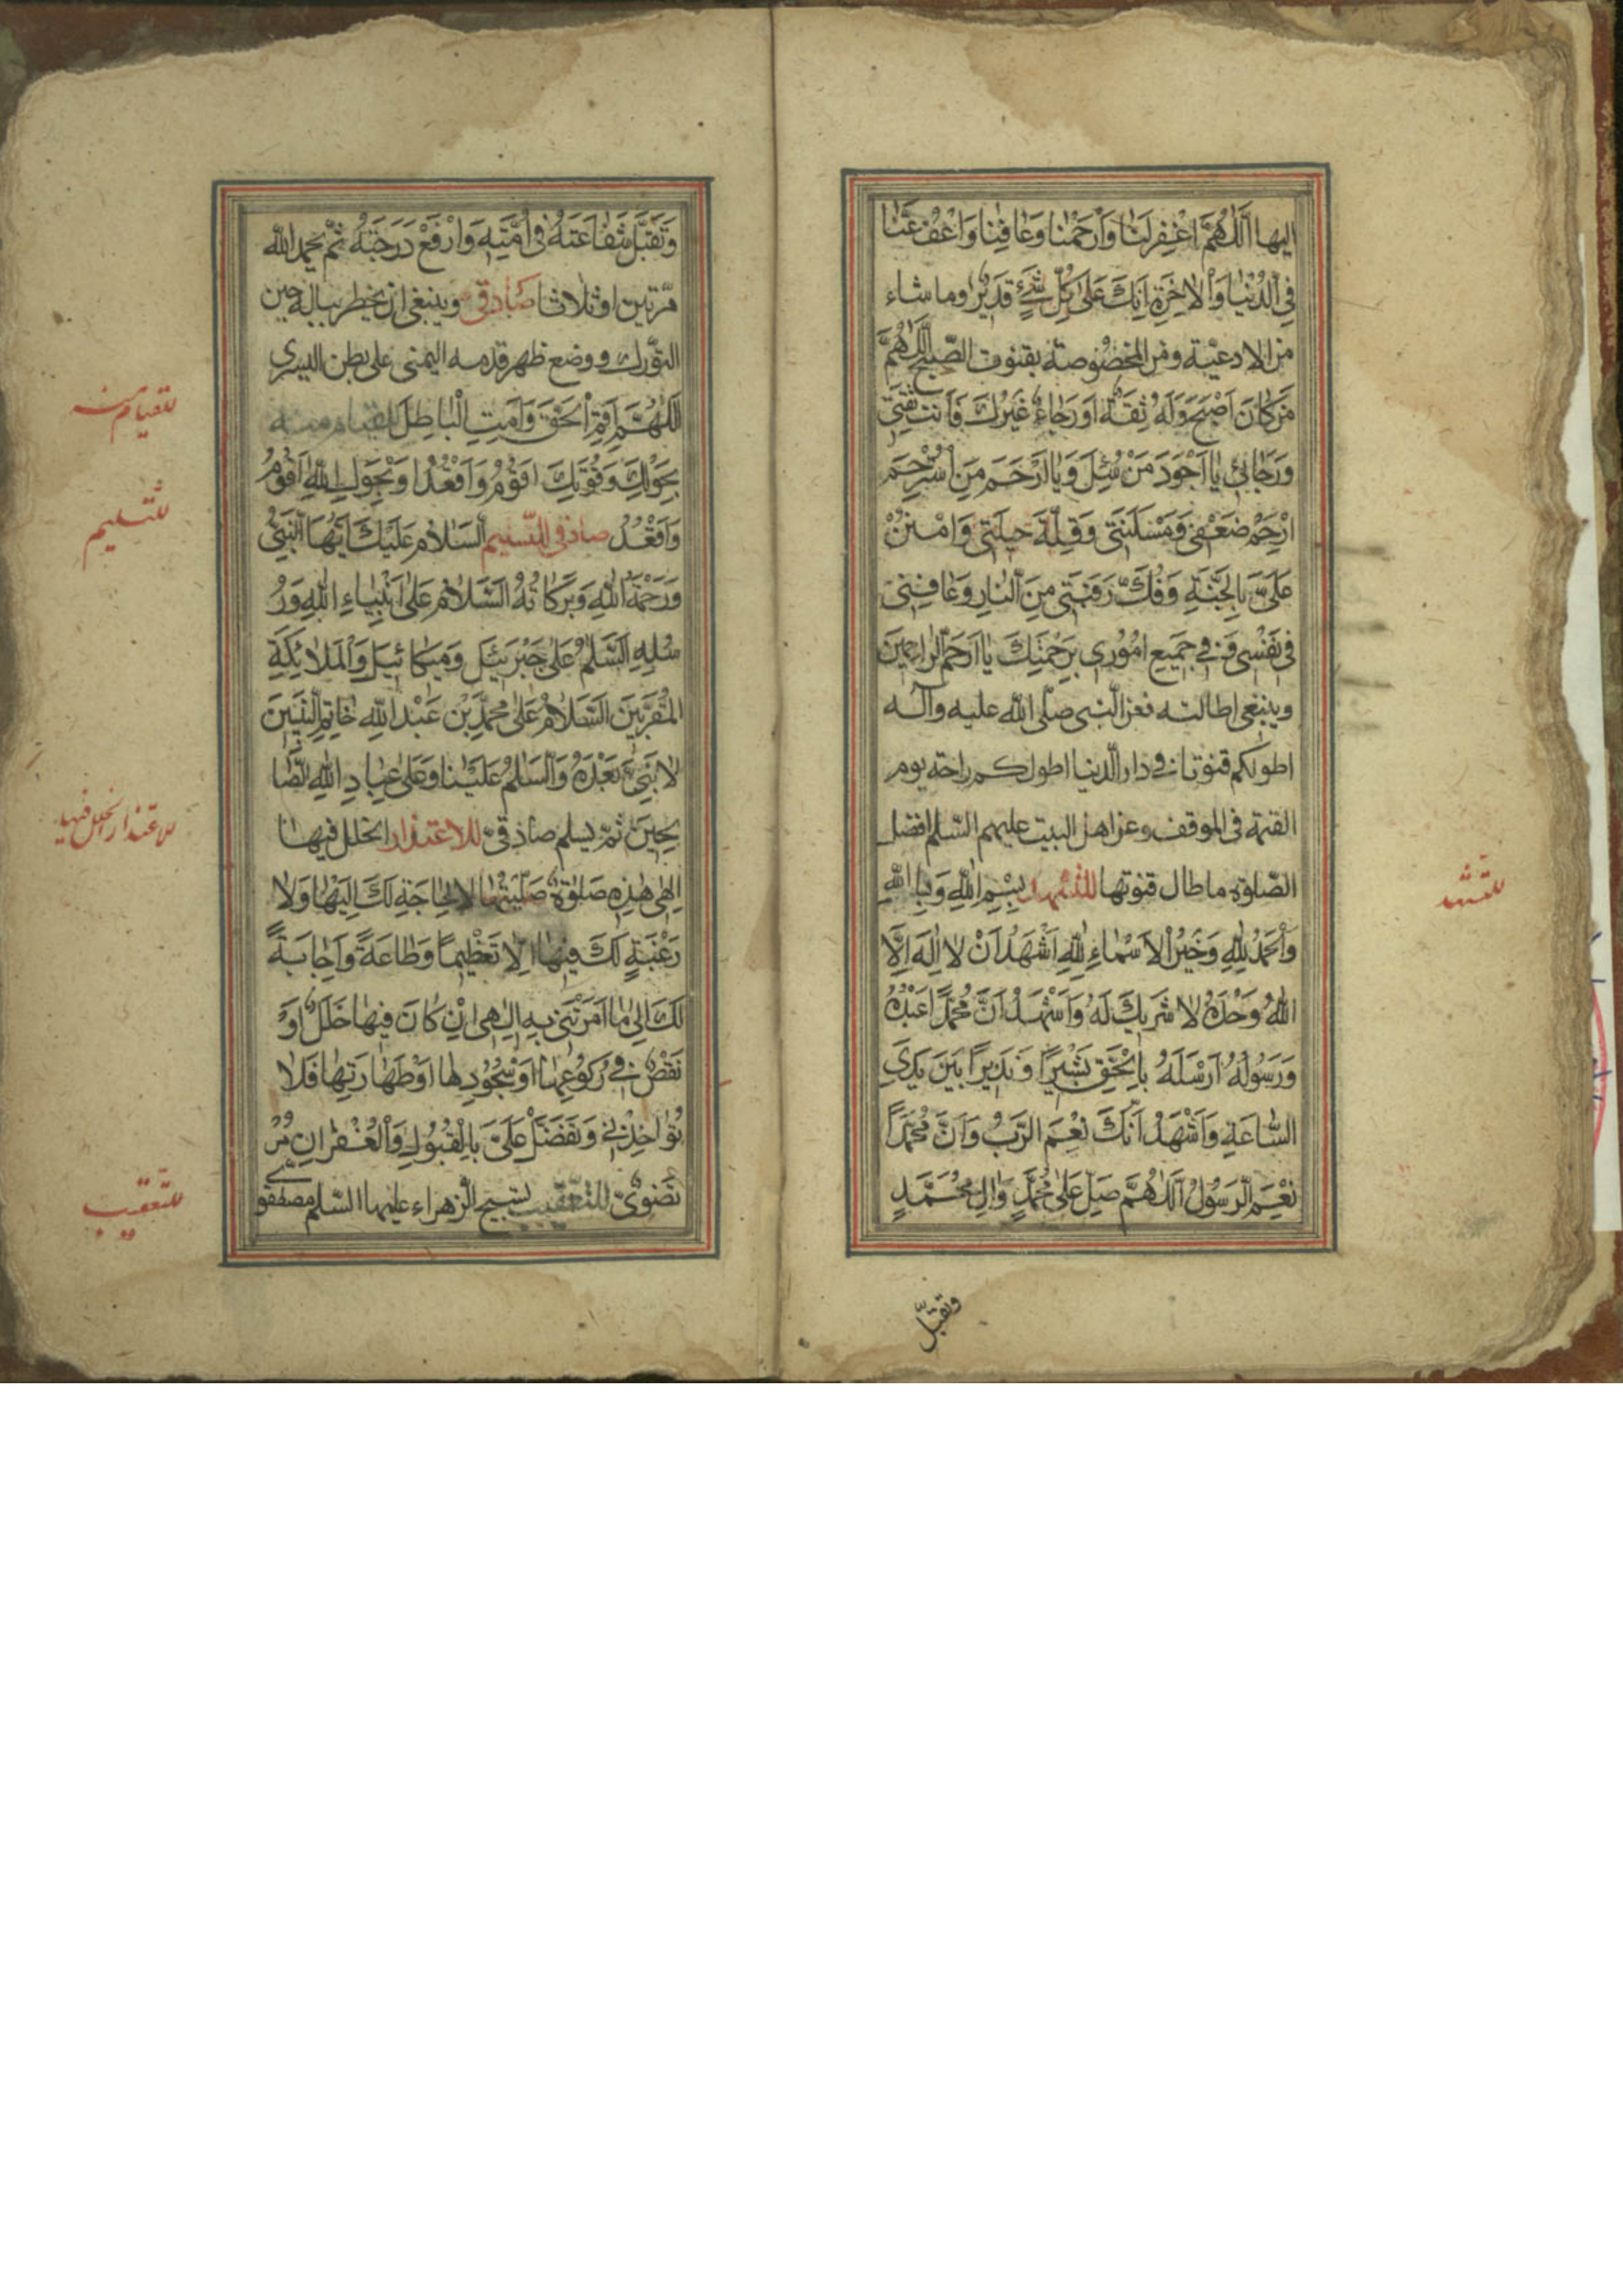 اليها اَللّٰهُمَّ اغْفِرْلَنٰا وَارْحَمْنٰا وَعٰافِنٰا وَاعْفُ عَنّٰا
فِي الدُّنْيٰا وَالْاٰخِرَةِ اِنَّكَ عَلىٰ كُلِّ شَيْءٍ قَدِيرٌ وما شاء
من الادعية ومن المخصوصة بقنوت الصّبح اَللّٰهُمَّ
مَنْ كٰانَ اَصْبَحَ وَلَهُ ثِقَةٌ اَوْ رَجٰاءٌ غَيْرُكَ وَاَنْتَ ثِقَتِي
وَرَجٰائِي يٰا اَجْوَدَ مَنْ سُئِلَ وَيٰا اَرْحَمَ مَنِ اسْتُرْحِمَ
ارْحَمْ ضَعْفِي وَمَسْكَنَتِي وَقِلَّةَ حِيلَتِي وَامْنُنْ
عَلَيَّ بِالْجَنَّةِ وَفُكَّ رَقَبَتِي مِنَ النّٰارِ وَعٰافِنِي
فِي نَفْسِي وَفِي جَمِيعِ اُمُورِي بِرَحْمَتِكَ يٰا اَرْحَمَ الرّٰاحِمِينَ
وينبغى اطالته فعن النّبى صلّى اللّه عليه وآله
اطولكم قنوتا في دار الّدنيا اطولكم راحة يوم
القيمة فى الموقف وعن اهل البيت عليهم السّلم افضل
الصّلوة ما طال قنوتها للتشهد بِسْمِ اللّٰهِ وَبِاللّٰهِ
وَالْحَمْدُ لِلّٰهِ وَخَيْرُ الْاَسْمٰاءِ لِلّٰهِ اَشْهَدُ اَنْ لٰا اِلٰهَ اِلَّا
اللّٰهُ وَحْدَهُ لٰا شَرِيكَ لَهُ وَاَشْهَدُ اَنَّ مُحَمَّدًا عَبْدُهُ
وَرَسُولُهُ اَرْسَلَهُ بِالْحَقِّ بَشِيرًا وَنَذِيرًا بَيْنَ يَدَيِ
السّٰاعَةِ وَاَشْهَدُ اَنَّكَ نِعْمَ الرَّبُّ وَاَنَّ مُحَمَّدًا
نِعْمَ الرَّسُولُ اَللّٰهُمَّ صَلِّ عَلىٰ مُحَمَّدٍ وَاٰلِ مُحَمَّدٍ
للتشهد
وتقبّل
وَتَقَبَّلْ شَفٰاعَتَهُ فِي اُمَّتِهِ وَارْفَعْ دَرَجَتَهُ ثمّ يحمد اللّه
مرّتين او ثلاثا صادقى وينبغى ان يخطر بباله حين
التّورك ووضع ظهر قدمه اليمنى على بطن اليسرى
اَللّٰهُمَّ اَقِمِ الْحَقَّ وَاَمِتِ الْبٰاطِلَ للقيام منه
بِحَوْلِكَ وَقُوَّتِكَ اَقُومُ وَاَقْعُدُ اَوْ بِحَوْلِ اللّٰهِ اَقُومُ
وَاَقْعُدُ صادقى للتسليم اَلسَّلٰامُ عَلَيْكَ اَيُّهَا النَّبِيُّ
وَرَحْمَةُ اللّٰهِ وَبَرَكٰاتُهُ اَلسَّلٰامُ عَلىٰ اَنْبِيٰاءِ اللّٰهِ وَرُ
سُلِهِ اَلسَّلٰمُ عَلىٰ جَبْرَئِيلَ وَمِيكٰائِيلَ وَالْمَلٰائِكَةِ
الْمُقَرَّبِينَ اَلسَّلٰامُ عَلىٰ مُحَمَّدِ بْنِ عَبْدِ اللّٰهِ خٰاتَمِ النَّبِيّينَ
لٰا نَبِيَّ بَعْدَهُ وَالسَّلٰمُ عَلَيْنٰا وَعَلىٰ عِبٰادِ اللّٰهِ الصّٰا
لِحِينَ ثمّ يسلم صادقىّ للاعتذار الخلل فيها
اِلٰهِي هٰذِهِ صَلٰوةٌ صَلَّيْتُهٰا لٰا لِحٰاجَةٍ لَكَ اِلَيْهٰا وَلٰا
رَغْبَةٍ لَكَ فِيهٰا اِلّٰا تَعْظِيمًا وَطٰاعَةً وَاِجٰابَةً
لَكَ اِلىٰ مٰا اَمَرْتَنِي بِهِ اِلٰهِي اِنْ كٰانَ فِيهٰا خَلَلٌ اَوْ
نَقْصٌ فِي رُكُوعِهٰا اَوْ سُجُودِهٰا اَوْ طَهٰارَتِهٰا فَلٰا
تُؤٰاخِذْنِي وَتَفَضَّلْ عَلَيَّ بِالْقَبُولِ وَالْغُفْرٰانِ مر
تضوىّ للتعقيب تسبيح الزهراء عليها السّلم مصطفو
للقيام منه
للتسليم
للاعتذار الخلل فيها
للتعقيب